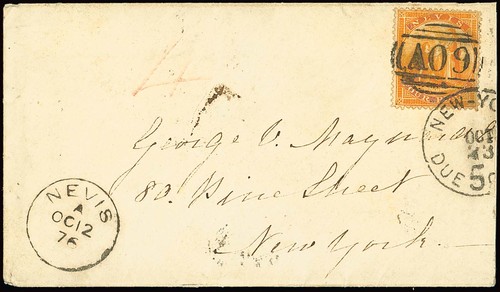 4
NEVIS
A09
NEW-YO
OCT
23
DUE 5 C
George V. Maynard
80. Pine Street
New York.
NEVIS
A
OC 12
76